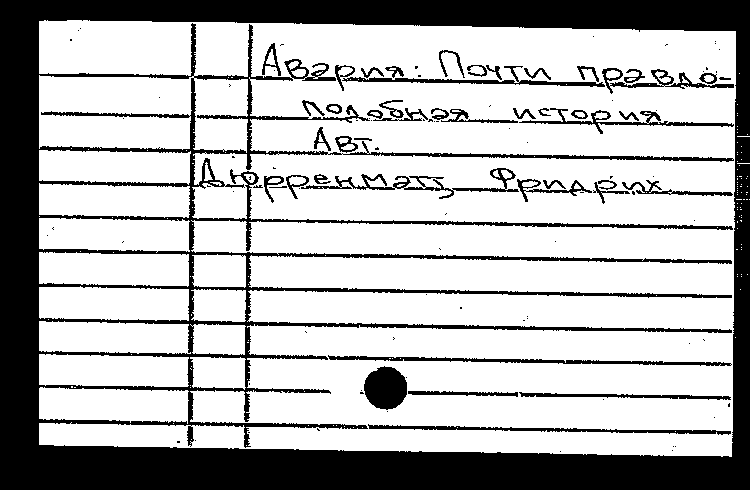 Авария: Почти правдо-
подобная история
Авт.
Дюрренматт, Фридрих